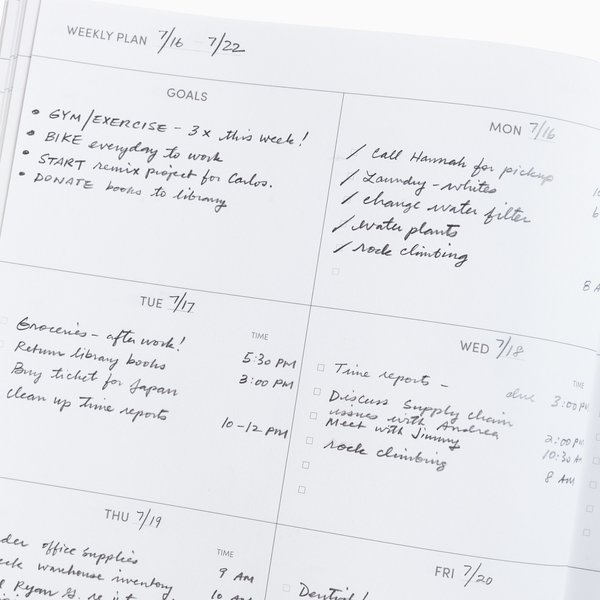 WEEKLY PLAN 7/16 - 7/22
GOALS
• GYM/EXERCISE - 3x this week!
• BIKE everyday to work
• START remix project for Carlos.
• DONATE books to library
MON 7/16
/ Call Hannah for pickup
/ Laundry - whites
/ change water filter
/ water plants
/ rock climbing
8 A
TUE 7/17
TIME
Groceries - after work! 5:30 PM
Return library books 3:00 PM
Buy ticket for Japan
clean up time reports 10-12 PM
WED 7/18
TIME
Time reports - due 3:00 PM
Discuss Supply chain
issues with Andrea 2:00 PM
Meet with Jimmy 10:30 AM
rock climbing 8 AM
THU 7/19
TIME
office supplies 9 AM
warehouse inventory 10 AM
Ryan G. re
FRI 7/20
Dentist!